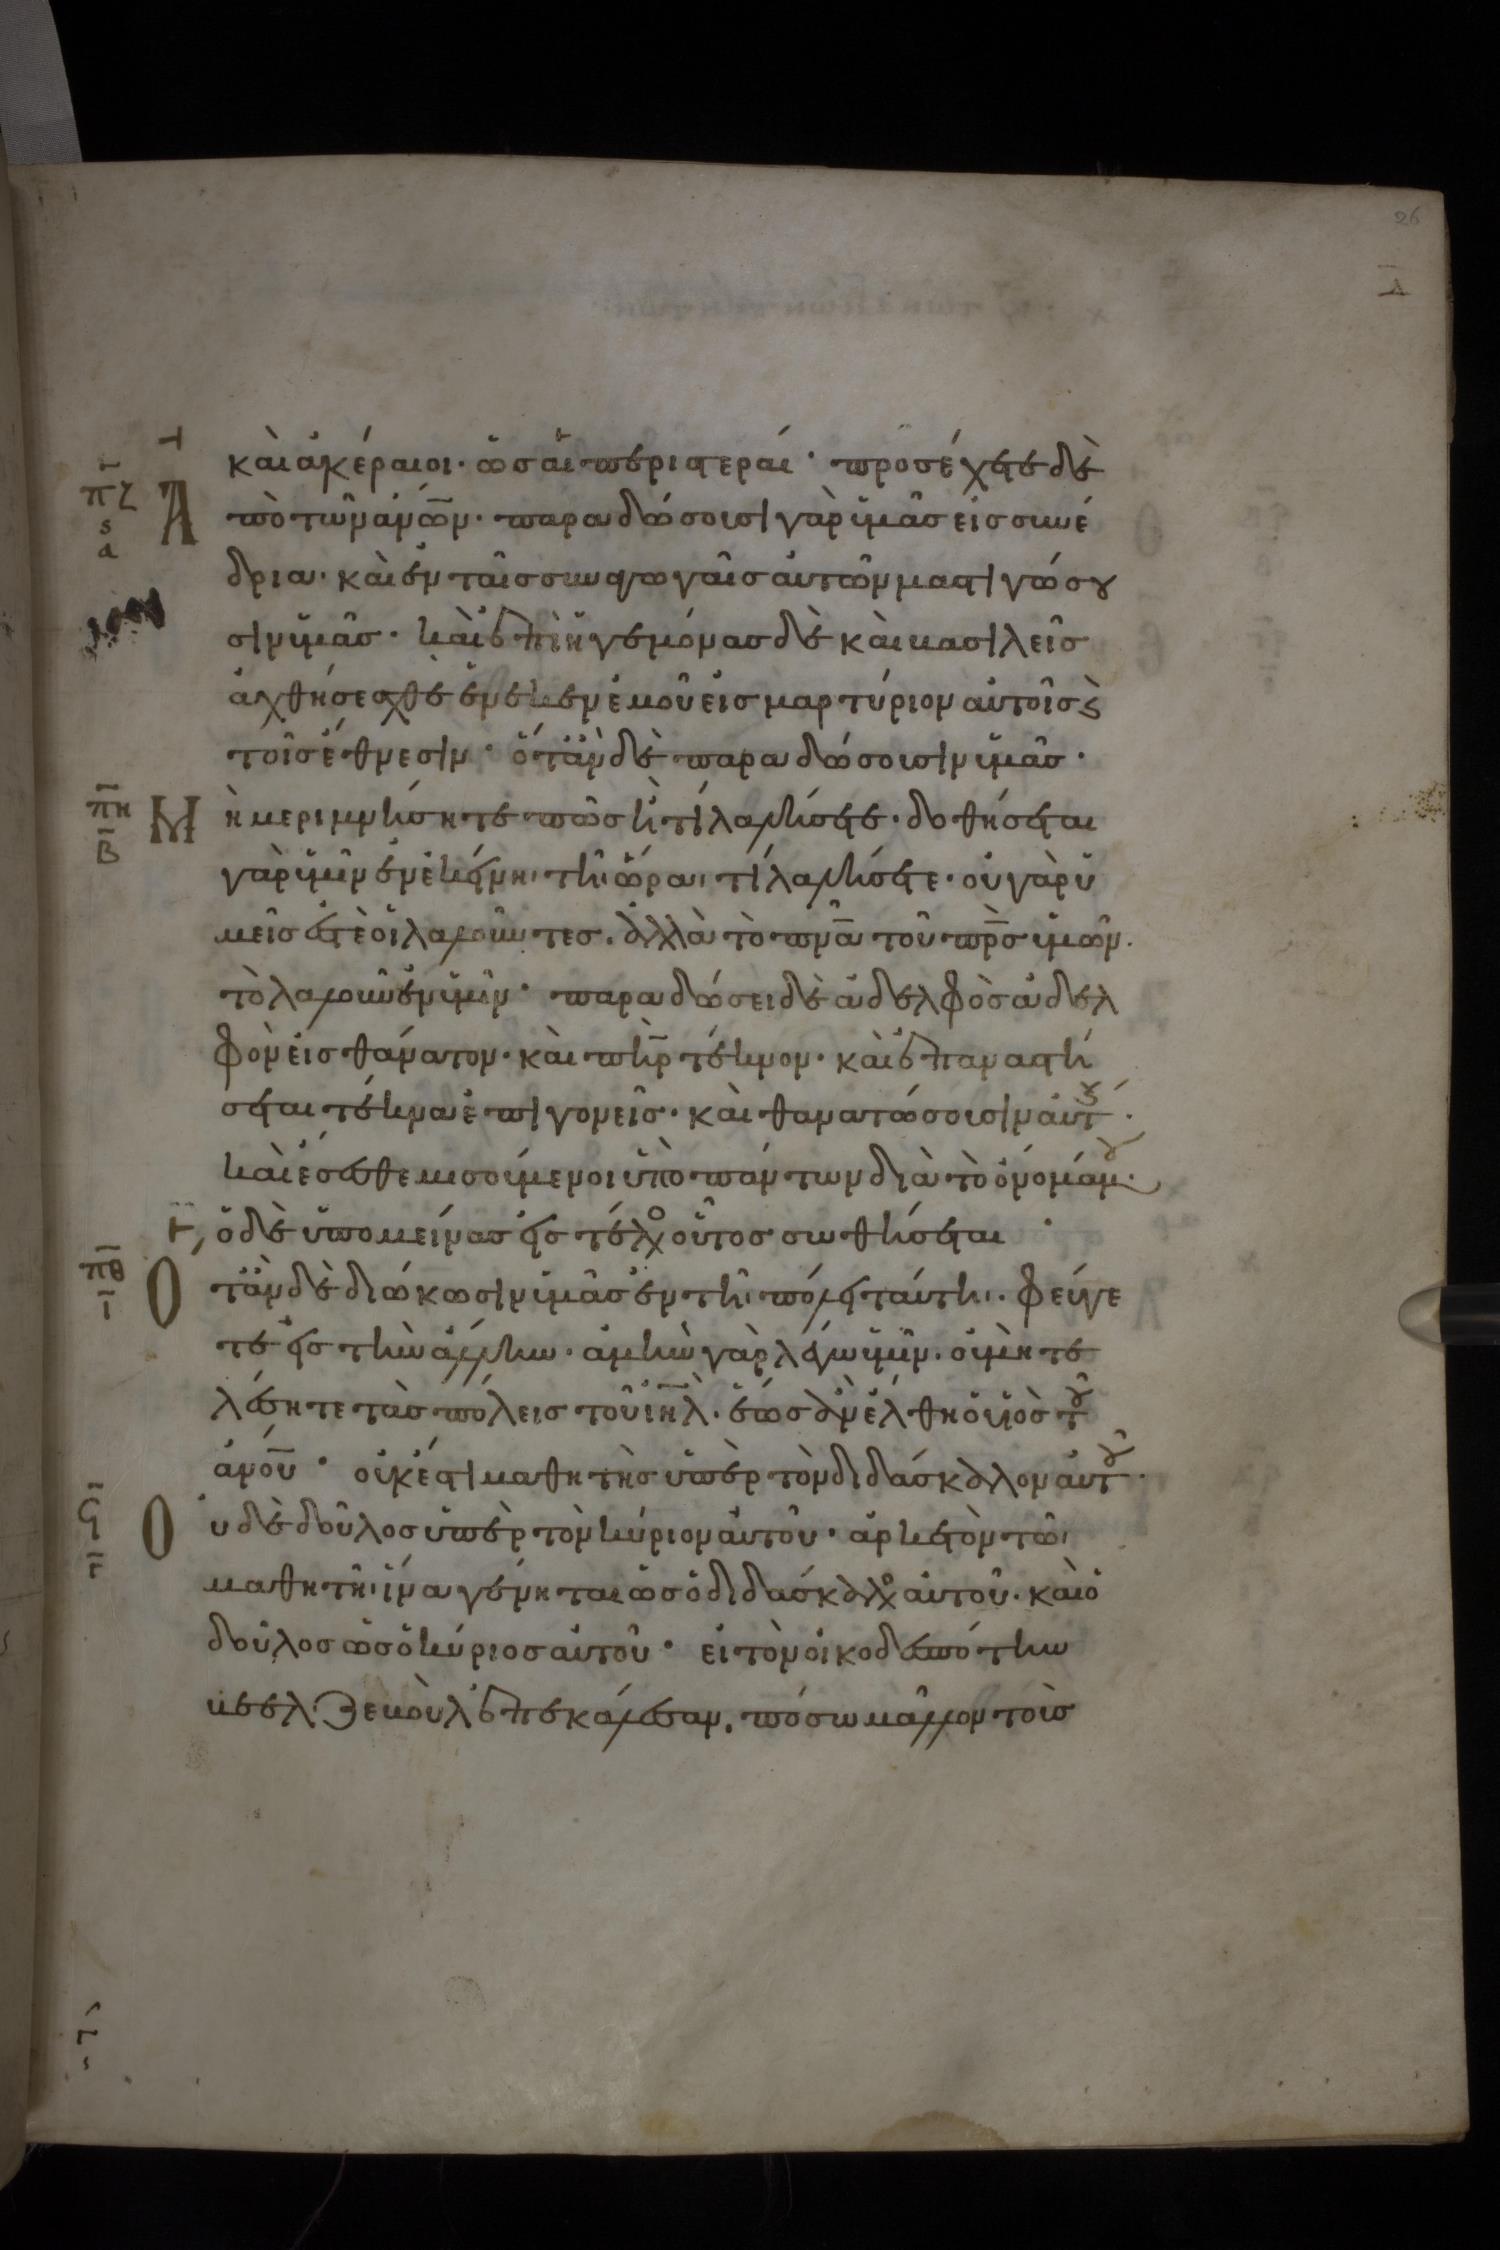 26
καὶ ἀκέραιοι· ὡσαῖ περιστεραί· προσέχετε δὲ
πζ Ἀπὸ τῶν ἀν̅ω̅ν· παραδώσουσι γὰρ ὑμᾶς εἰς συνέ
δρια· καὶ ἐν ταῖς συναγωγαῖς αὐτῶν μαστιγώσου
σιν ὑμᾶς· καὶ ἐπὶ ἡγεμόνας δὲ καὶ βασιλεῖς
ἀχθήσεσθε ἕνεκεν ἐμοῦ εἰς μαρτύριον αὐτοῖς ϗ
τοῖς ἔθνεσιν· ὅταν δὲ παραδώσουσιν ὑμᾶς·
πη β Μὴ μεριμνήσητε πῶς ἢ τί λαλήσετε· δοθήσεται
γὰρ ὑμῖν ἐν ἐκείνη τῆ ὥρα τί λαλήσετε· οὐ γὰρ ὑ
μεῖς ἐστὲ οἱ λαλοῦντες· ἀλλὰ τὸ πν̅α̅ τοῦ πρ̅ς̅ ὑμῶν·
τὸ λαλοῦν ἐν ὑμῖν· παραδώσει δὲ ἀδελφὸς ἀδελ
φὸν εἰς θάνατον· καὶ πη̅ρ̅ τέκνον· καὶ ἐπαναστή
σεται τέκνα ἐπι γονεῖς· καὶ θανατώσουσιν αὐτούς·
καὶ ἔσεσθε μισούμενοι ὑπὸ πάντων διὰ τὸ ὄνομά μου·
ὁ δὲ ὑπομείνας εἰς τέλος οὗτος σωθήσεται·
πθ ι Ὅταν δὲ διώκωσιν ὑμᾶς ἐν τῆ πόλει ταύτη· φεύγε
τε εἰς τὴν ἄλλην· ἀμὴν γὰρ λέγω ὑμῖν· οὐ μὴ τε
λέσητε τὰς πόλεις τοῦ ἰη̅λ̅· ἕως ἂν ἔλθη ὁ υἱὸς τοῦ
ἀν̅ο̅υ̅· οὐκ ἔστι μαθητὴς ὑπὲρ τὸν διδάσκαλον αὐτοῦ·
ϟ γ Οὐδὲ δοῦλος ὑπὲρ τὸν κύριον αὐτοῦ· ἀρκετὸν τῶ
μαθητῆ ἵνα γένηται ὡς ὁ διδάσκαλος αὐτοῦ· καὶ ὁ
δοῦλος ὡς ὁ κύριος αὐτοῦ· εἰ τὸν οἰκοδεσπότην
βεελζεβοὺλ ἐπεκάλεσαν, πόσω μᾶλλον τοὺς